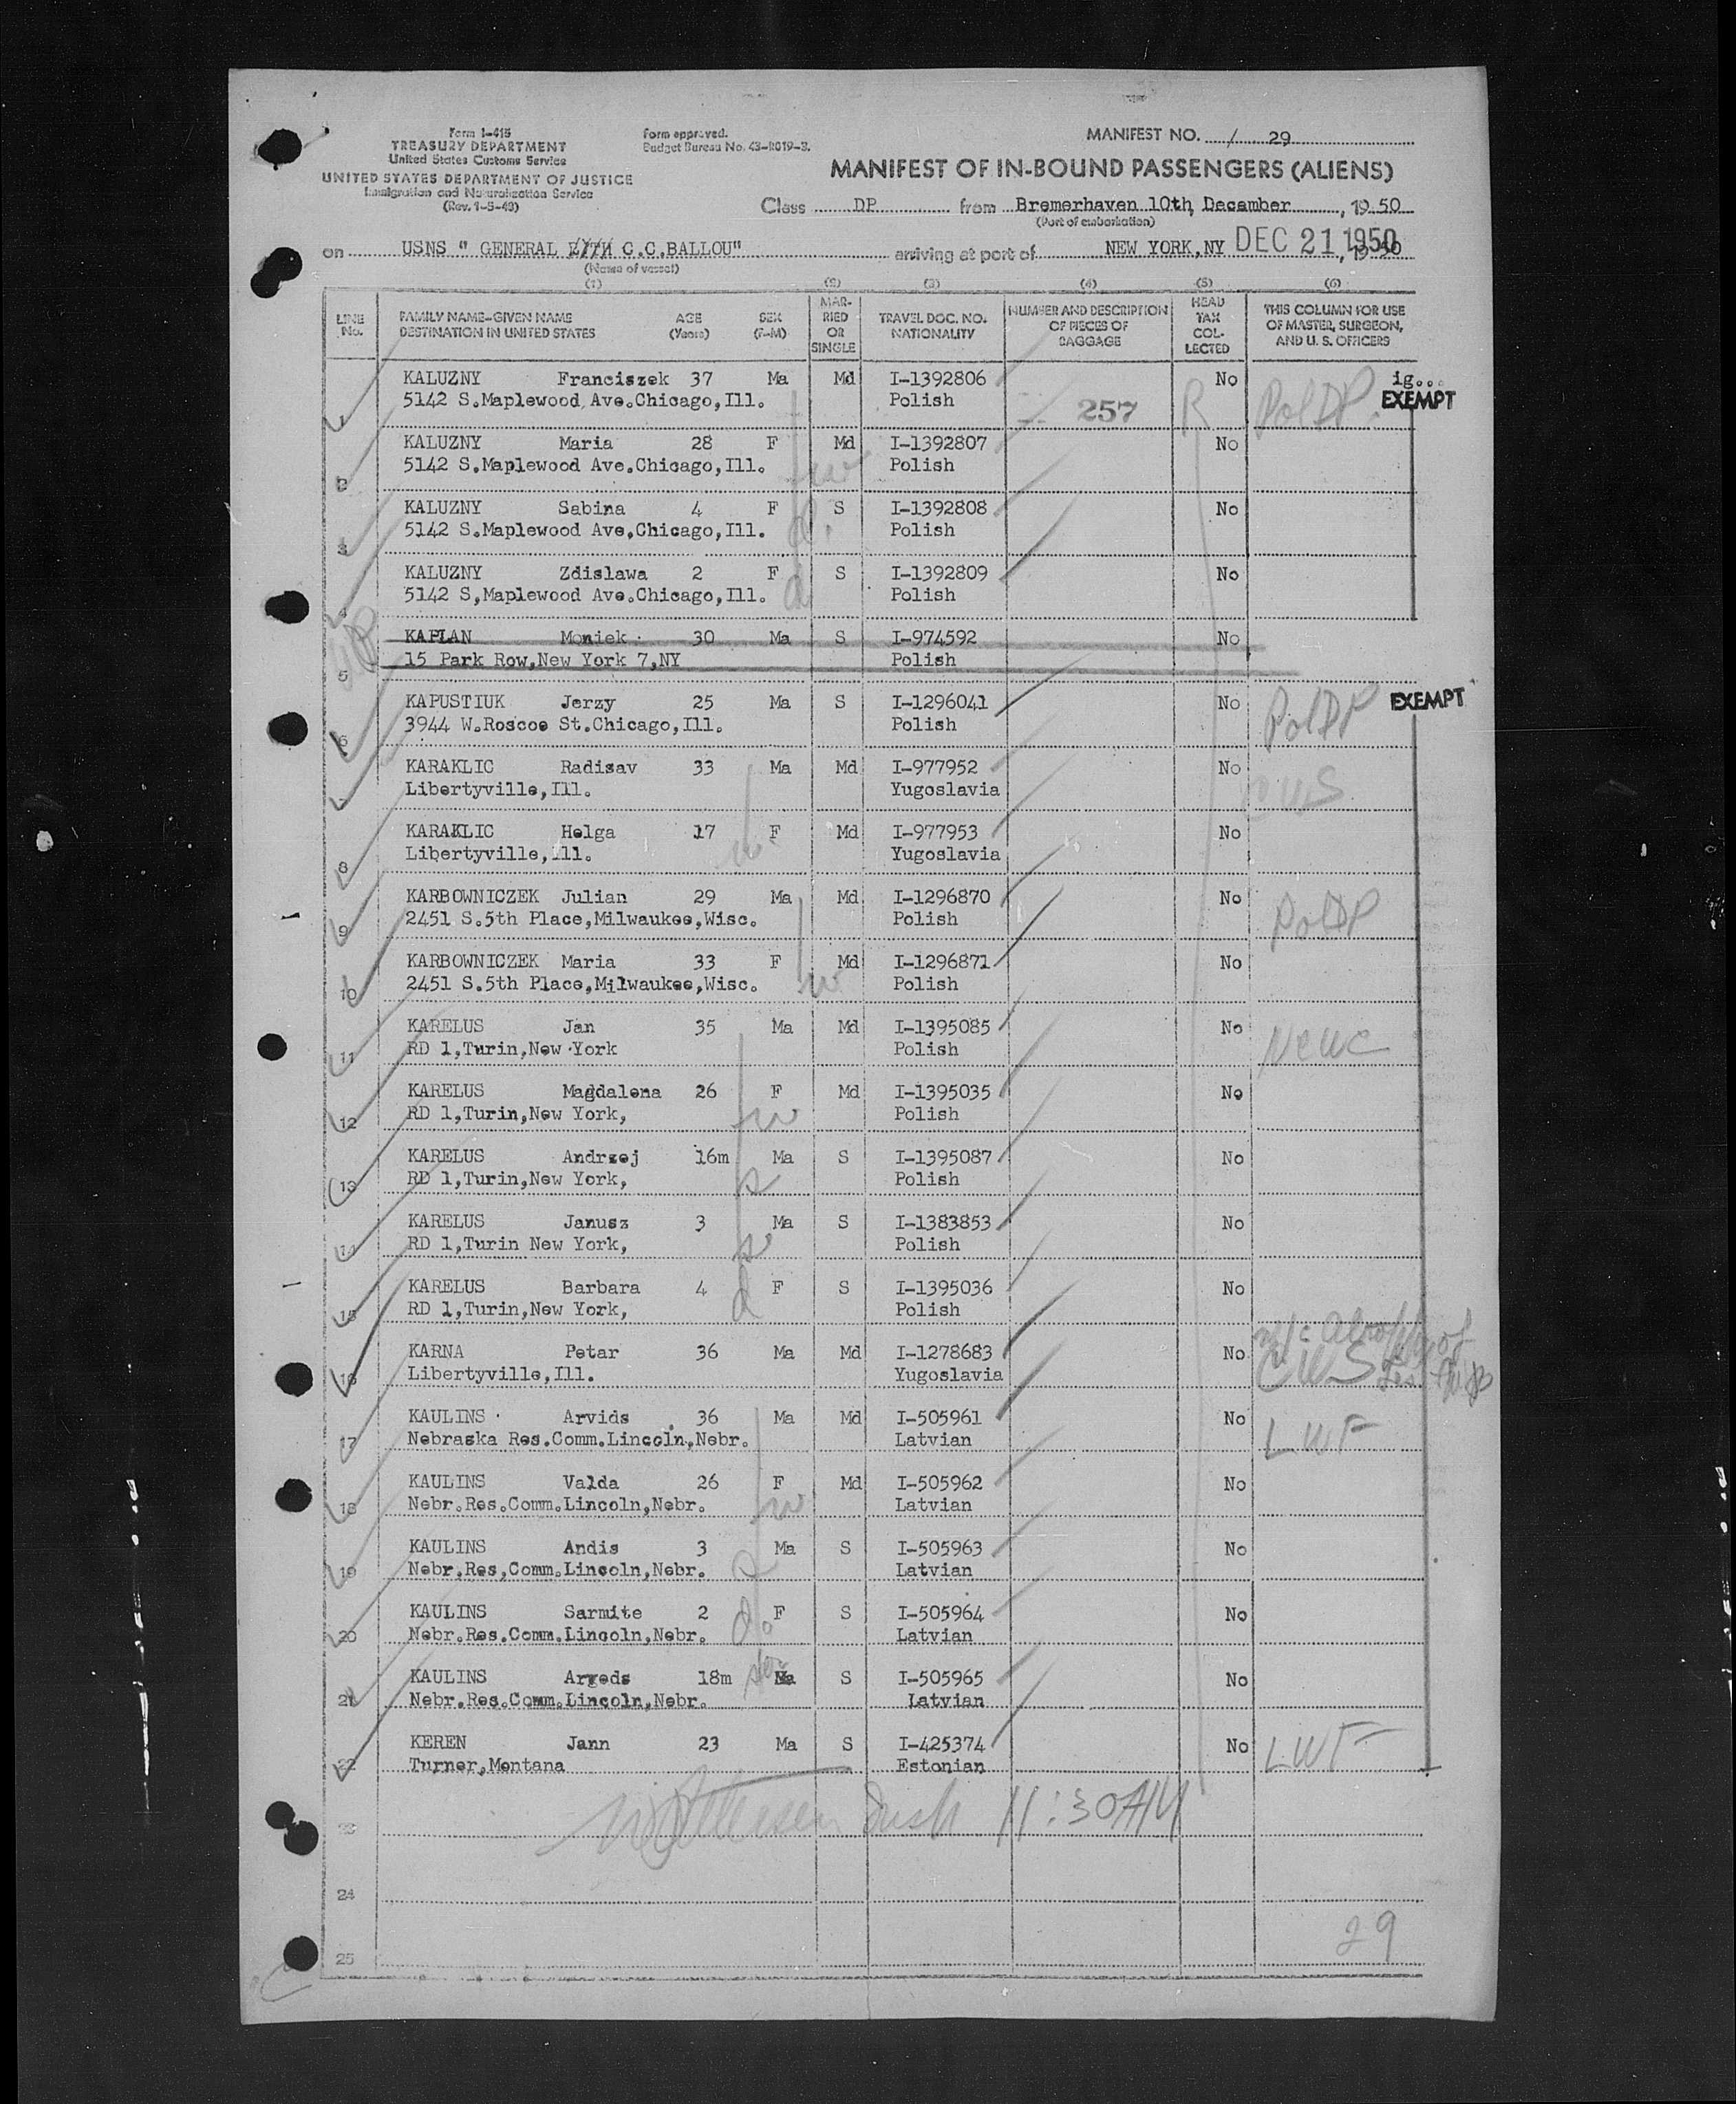 Form I-415
TREASURY DEPARTMENT
United States Customs Service
UNITED STATES DEPARTMENT OF JUSTICE
Immigration and Naturalization Service
(Rev. 1-5-49)
Form approved.
Budget Bureau No. 43-R019-3.
MANIFEST NO. / 29
MANIFEST OF IN-BOUND PASSENGERS (ALIENS)
Class DP from Bremerhaven 10th, December, 19 50
(Port of embarkation)
on USNS " GENERAL C.C.BALLOU" arriving at port of NEW YORK,NY DEC 21 1950, 19 50
(Name of vessel)
(1) (2) (3) (4) (5) (6)
LINE No. FAMILY NAME-GIVEN NAME DESTINATION IN UNITED STATES AGE (Years) SEX (F-M) MARRIED OR SINGLE TRAVEL DOC. NO. NATIONALITY NUMBER AND DESCRIPTION OF PIECES OF BAGGAGE HEAD TAX COLLECTED THIS COLUMN FOR USE OF MASTER, SURGEON, AND U. S. OFFICERS
1 KALUZNY Franciszek 37 Ma Md I-1392806 No ig...
5142 S.Maplewood Ave.Chicago,Ill. Polish 257 R PolDP EXEMPT
2 KALUZNY Maria 28 F Md I-1392807 No
5142 S.Maplewood Ave.Chicago,Ill. w Polish
3 KALUZNY Sabina 4 F S I-1392808 No
5142 S.Maplewood Ave,Chicago,Ill. d. Polish
4 KALUZNY Zdislawa 2 F S I-1392809 No
5142 S,Maplewood Ave.Chicago,Ill. d Polish
5 KAPLAN Moniek 30 Ma S I-974592 No
15 Park Row,New York 7,NY Polish
6 KAPUSTIUK Jerzy 25 Ma S I-1296041 No PolDP EXEMPT
3944 W.Roscoe St.Chicago,Ill. Polish
7 KARAKLIC Radisav 33 Ma Md I-977952 No CWS
Libertyville,Ill. Yugoslavia
8 KARAKLIC Helga 17 F Md I-977953 No
Libertyville,Ill. w Yugoslavia
9 KARBOWNICZEK Julian 29 Ma Md I-1296870 No PolDP
2451 S.5th Place,Milwaukee,Wisc. Polish
10 KARBOWNICZEK Maria 33 F Md I-1296871 No
2451 S.5th Place,Milwaukee,Wisc. w Polish
11 KARELUS Jan 35 Ma Md I-1395085 No NCWC
RD 1,Turin,New York Polish
12 KARELUS Magdalena 26 F Md I-1395035 No
RD 1,Turin,New York, w Polish
13 KARELUS Andrzej 16m Ma S I-1395087 No
RD 1,Turin,New York, s Polish
14 KARELUS Janusz 3 Ma S I-1383853 No
RD 1,Turin New York, s Polish
15 KARELUS Barbara 4 F S I-1395036 No
RD 1,Turin,New York, d Polish
16 KARNA Petar 36 Ma Md I-1278683 No CWS
Libertyville,Ill. Yugoslavia
17 KAULINS Arvids 36 Ma Md I-505961 No LWF
Nebraska Res.Comm.Lincoln,Nebr. Latvian
18 KAULINS Valda 26 F Md I-505962 No
Nebr.Res.Comm.Lincoln,Nebr. w Latvian
19 KAULINS Andis 3 Ma S I-505963 No
Nebr.Res,Comm.Lincoln,Nebr. s Latvian
20 KAULINS Sarmite 2 F S I-505964 No
Nebr.Res.Comm.Lincoln,Nebr. d. Latvian
21 KAULINS Argeds 18m Ma S I-505965 No
Nebr.Res.Comm.Lincoln,Nebr. Latvian
22 KEREN Jann 23 Ma S I-425374 No LWF
Turner,Montana Estonian
23 11:30AM
24
29
25